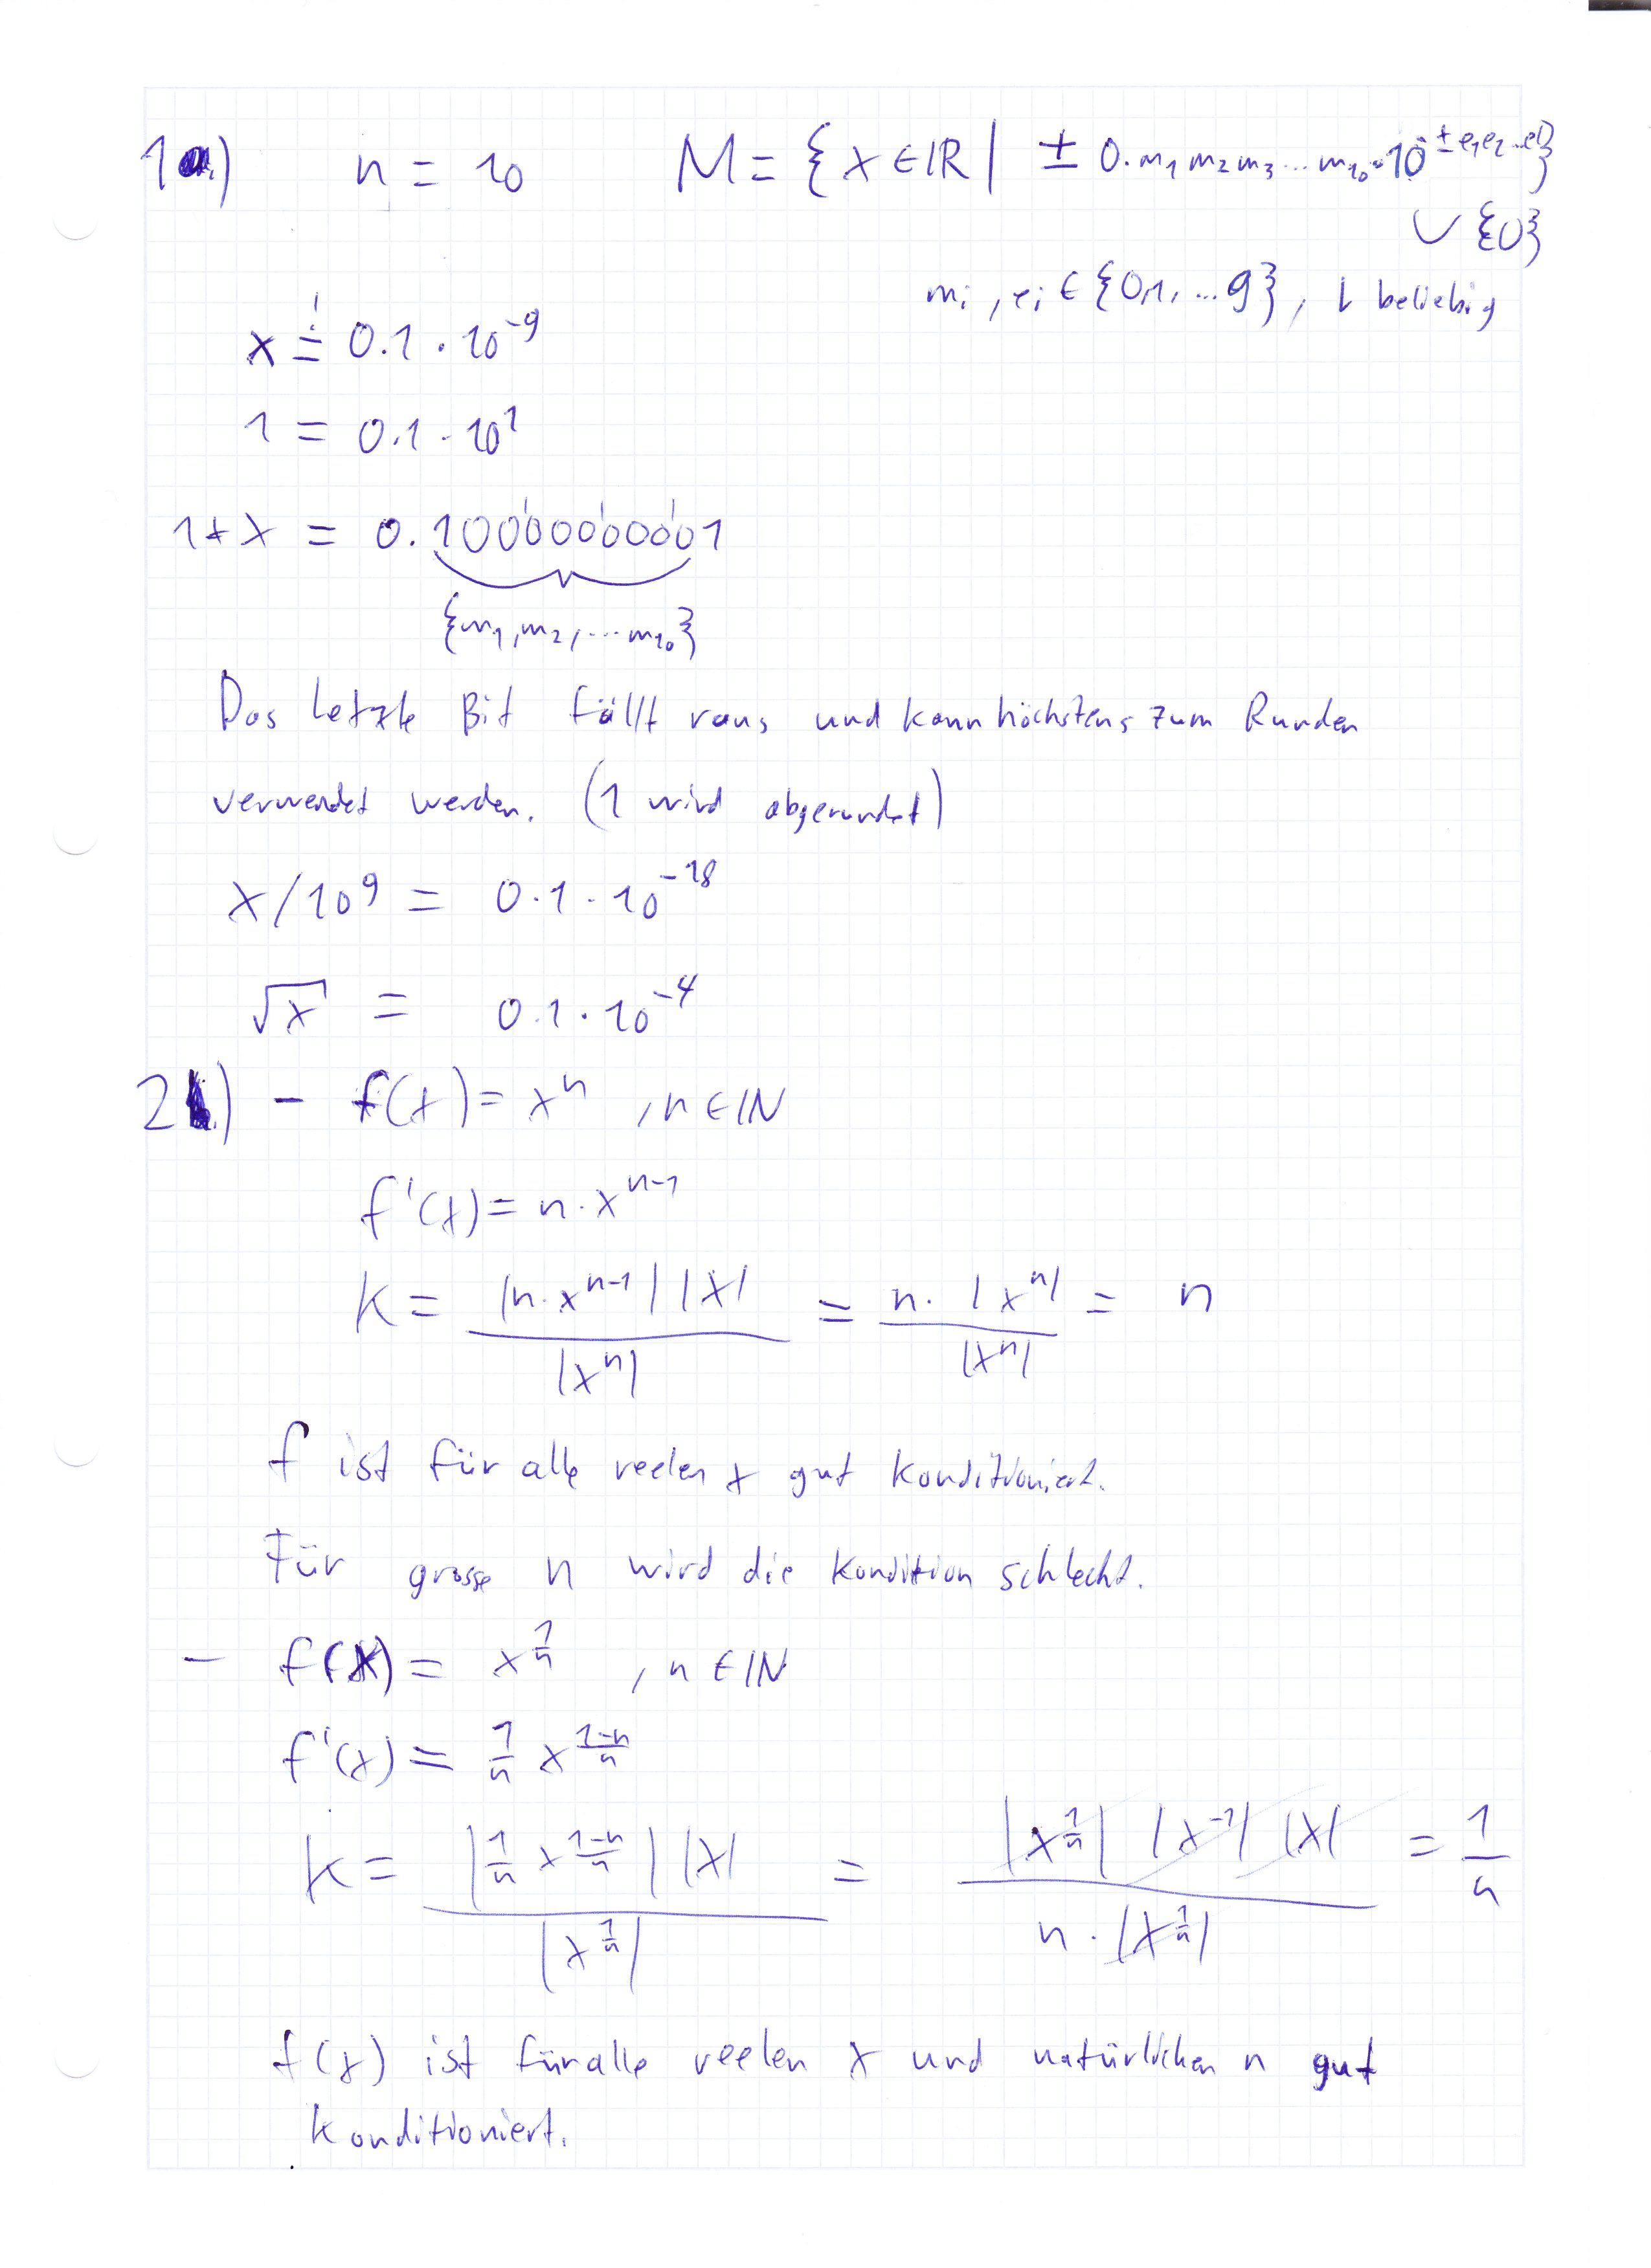 1a.) n = 10 M = {x ∈ ℝ | ± 0.m₁m₂m₃...m₁₀·10^(±e₁e₂...el)}
∪ {0}
mᵢ, eᵢ ∈ {0,1,...9}, l beliebig
x = 0.1 · 10⁻⁹
1 = 0.1 · 10¹
1+x = 0.10000000001
{m₁,m₂,...m₁₀}
Das letzte Bit fällt raus und kann höchstens zum Runden
verwendet werden. (1 wird abgerundet)
x/10⁹ = 0.1 · 10⁻¹⁸
√x = 0.1 · 10⁻⁴
2.) - f(x) = xⁿ , n ∈ ℕ
f'(x) = n · xⁿ⁻¹
K = |n · xⁿ⁻¹| |x| / |xⁿ| = n · |xⁿ| / |xⁿ| = n
f ist für alle reelen x gut konditioniert.
Für grosse n wird die Kondition schlecht.
- f(x) = x^(1/n) , n ∈ ℕ
f'(x) = 1/n x^((1-n)/n)
K = |1/n x^((1-n)/n)| |x| / |x^(1/n)| = |x^(1/n)| |x⁻¹| |x| / n · |x^(1/n)| = 1/n
f(x) ist für alle reelen x und natürlichen n gut
konditioniert.